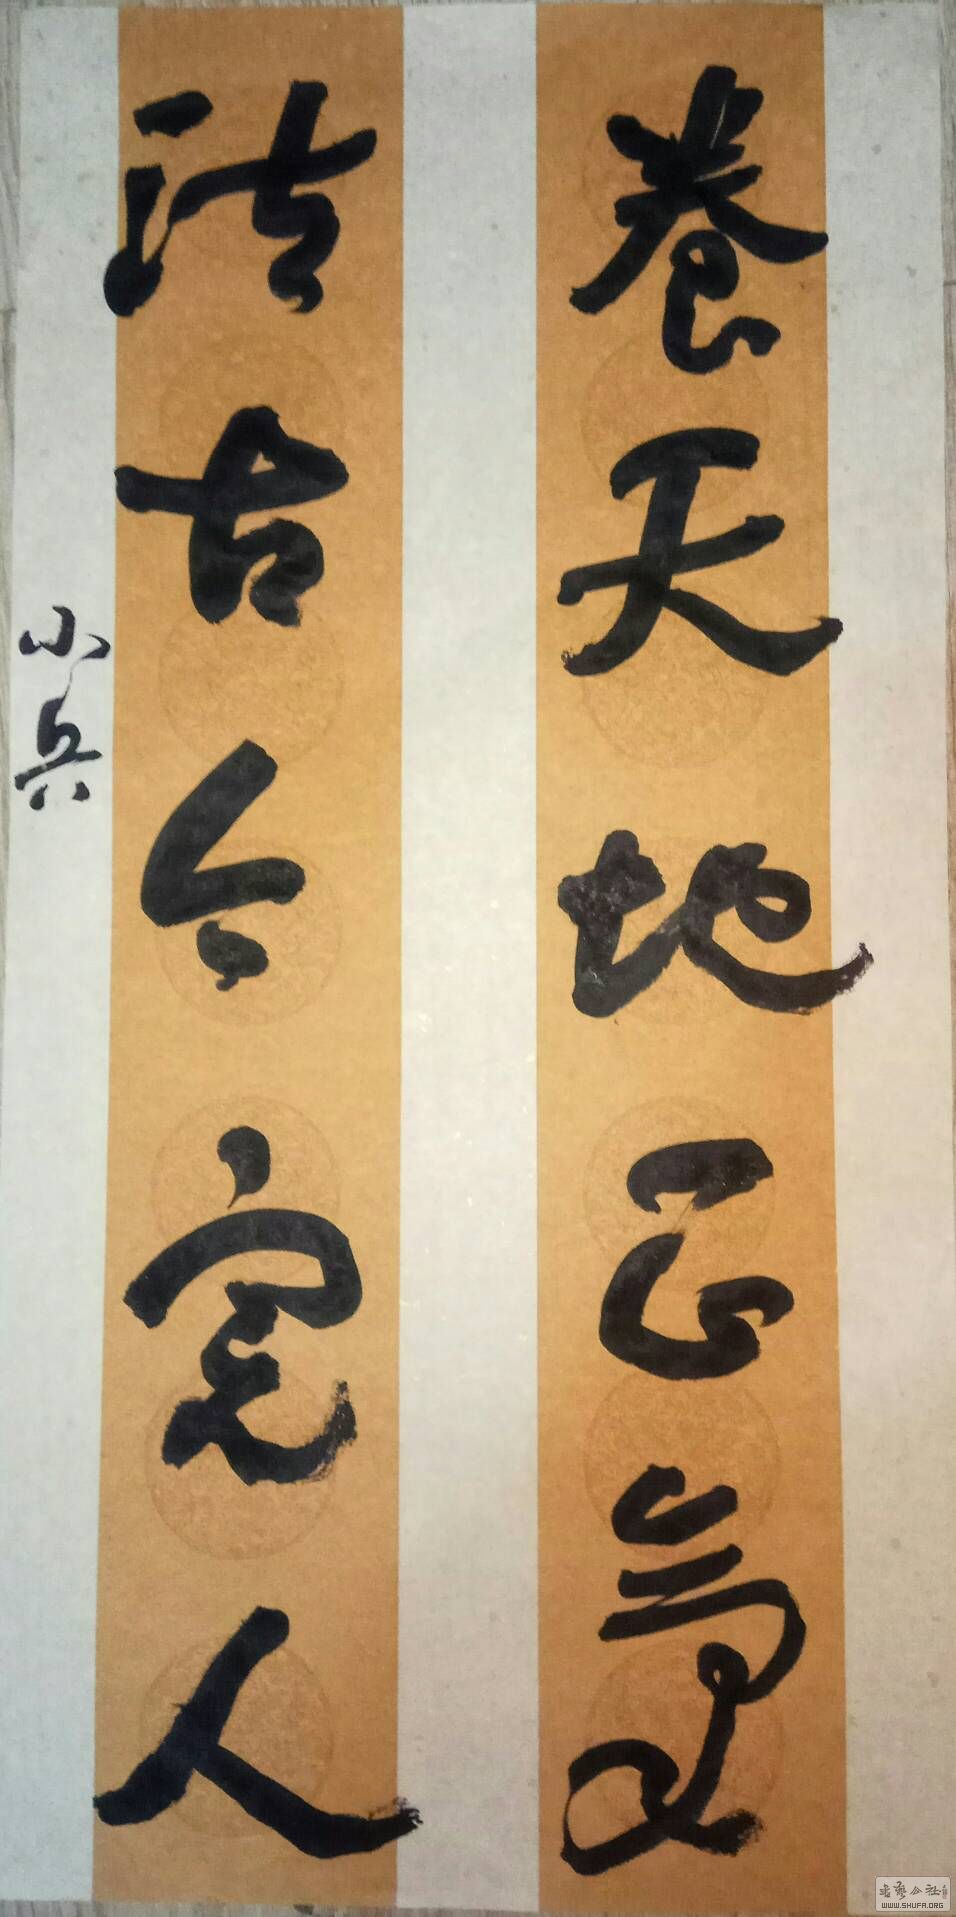 養天地正氣
法古今完人
小兵
书艺公社
WWW.SHUFA.ORG